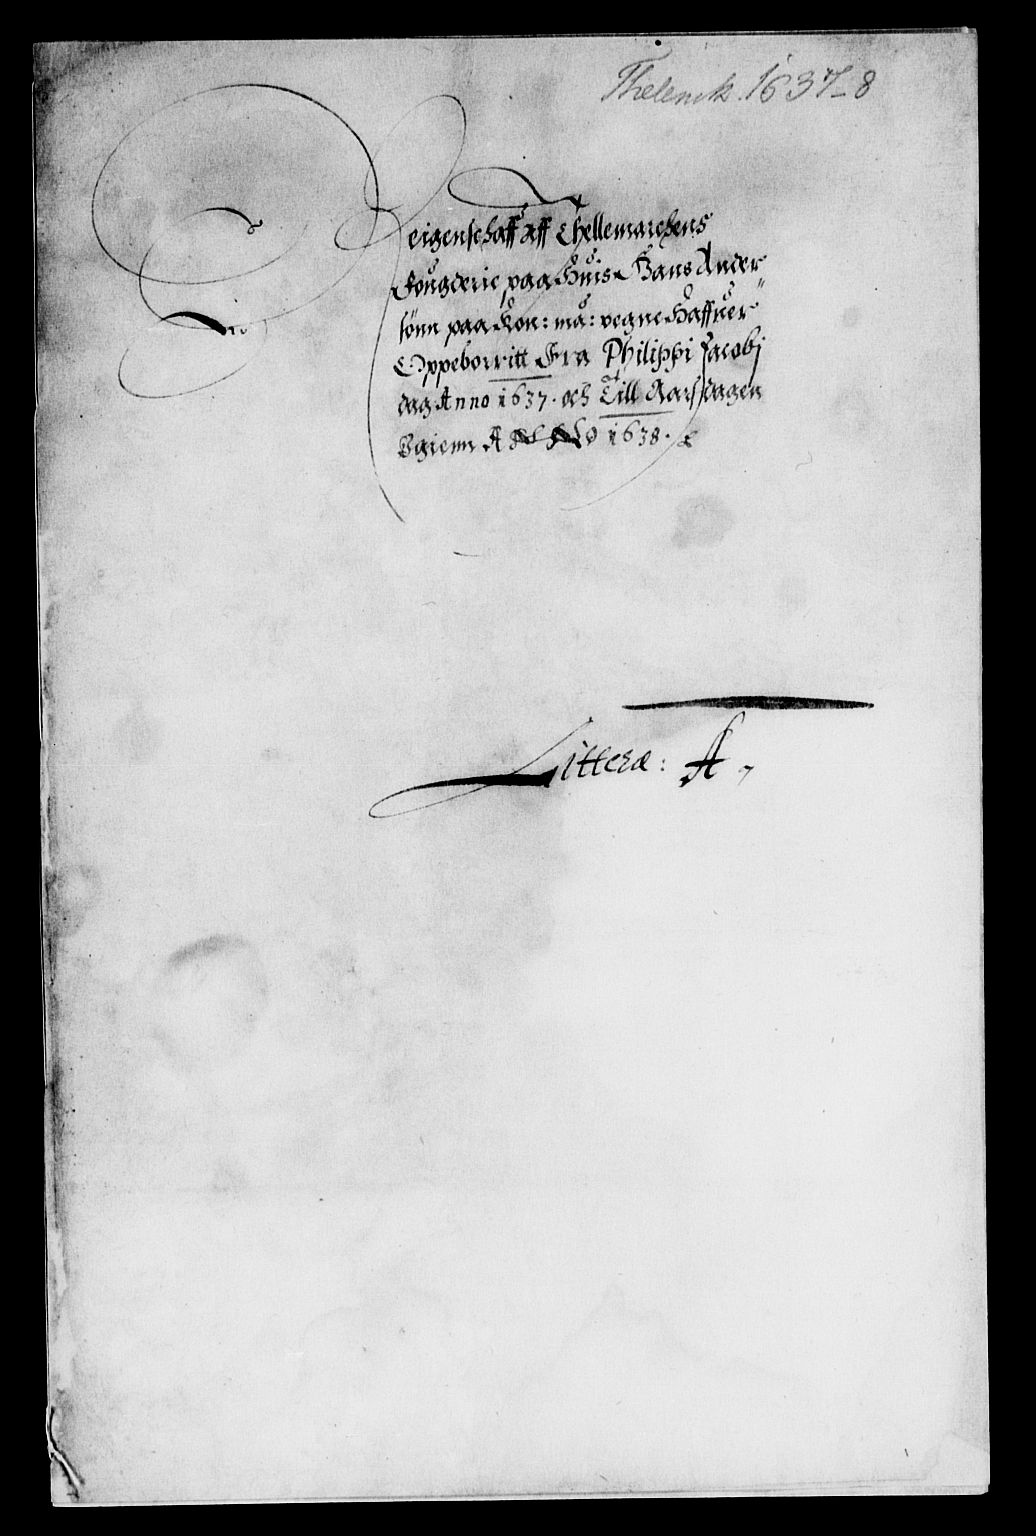 Thelemk. 1637-8
Reigenschaff aff Thellemarchens
Fougderie paa Huis Hans Ander
sönn paa Kon: ma: vegne Haffuer
Oppeborritt Fra Philippi Jacobj
dag Anno 1637. och Till Aarsdagen
Igienn ANNO 1638.
Littera: A.